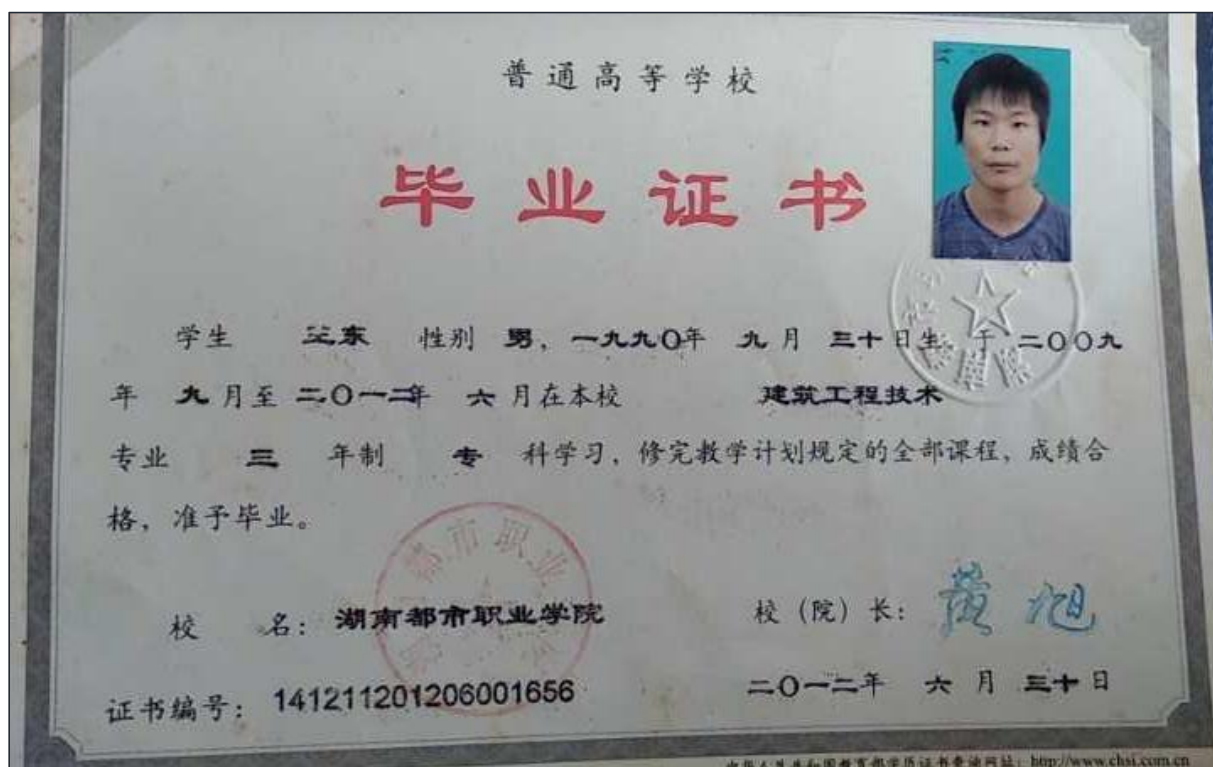 普通高等学校
毕业证书
学生 东 性别 男，一九九〇年 九月 三十日生 于 二〇〇九
年 九月至 二〇一二年 六月在本校 建筑工程技术
专业 三 年制 专 科学习，修完教学计划规定的全部课程，成绩合
格，准予毕业。
校 名：湖南都市职业学院
校（院）长：黄旭
证书编号：141211201206001656
二〇一二年 六月 三十日
中华人民共和国教育部学历证书查询网站：http://www.chsi.com.cn
都市职业